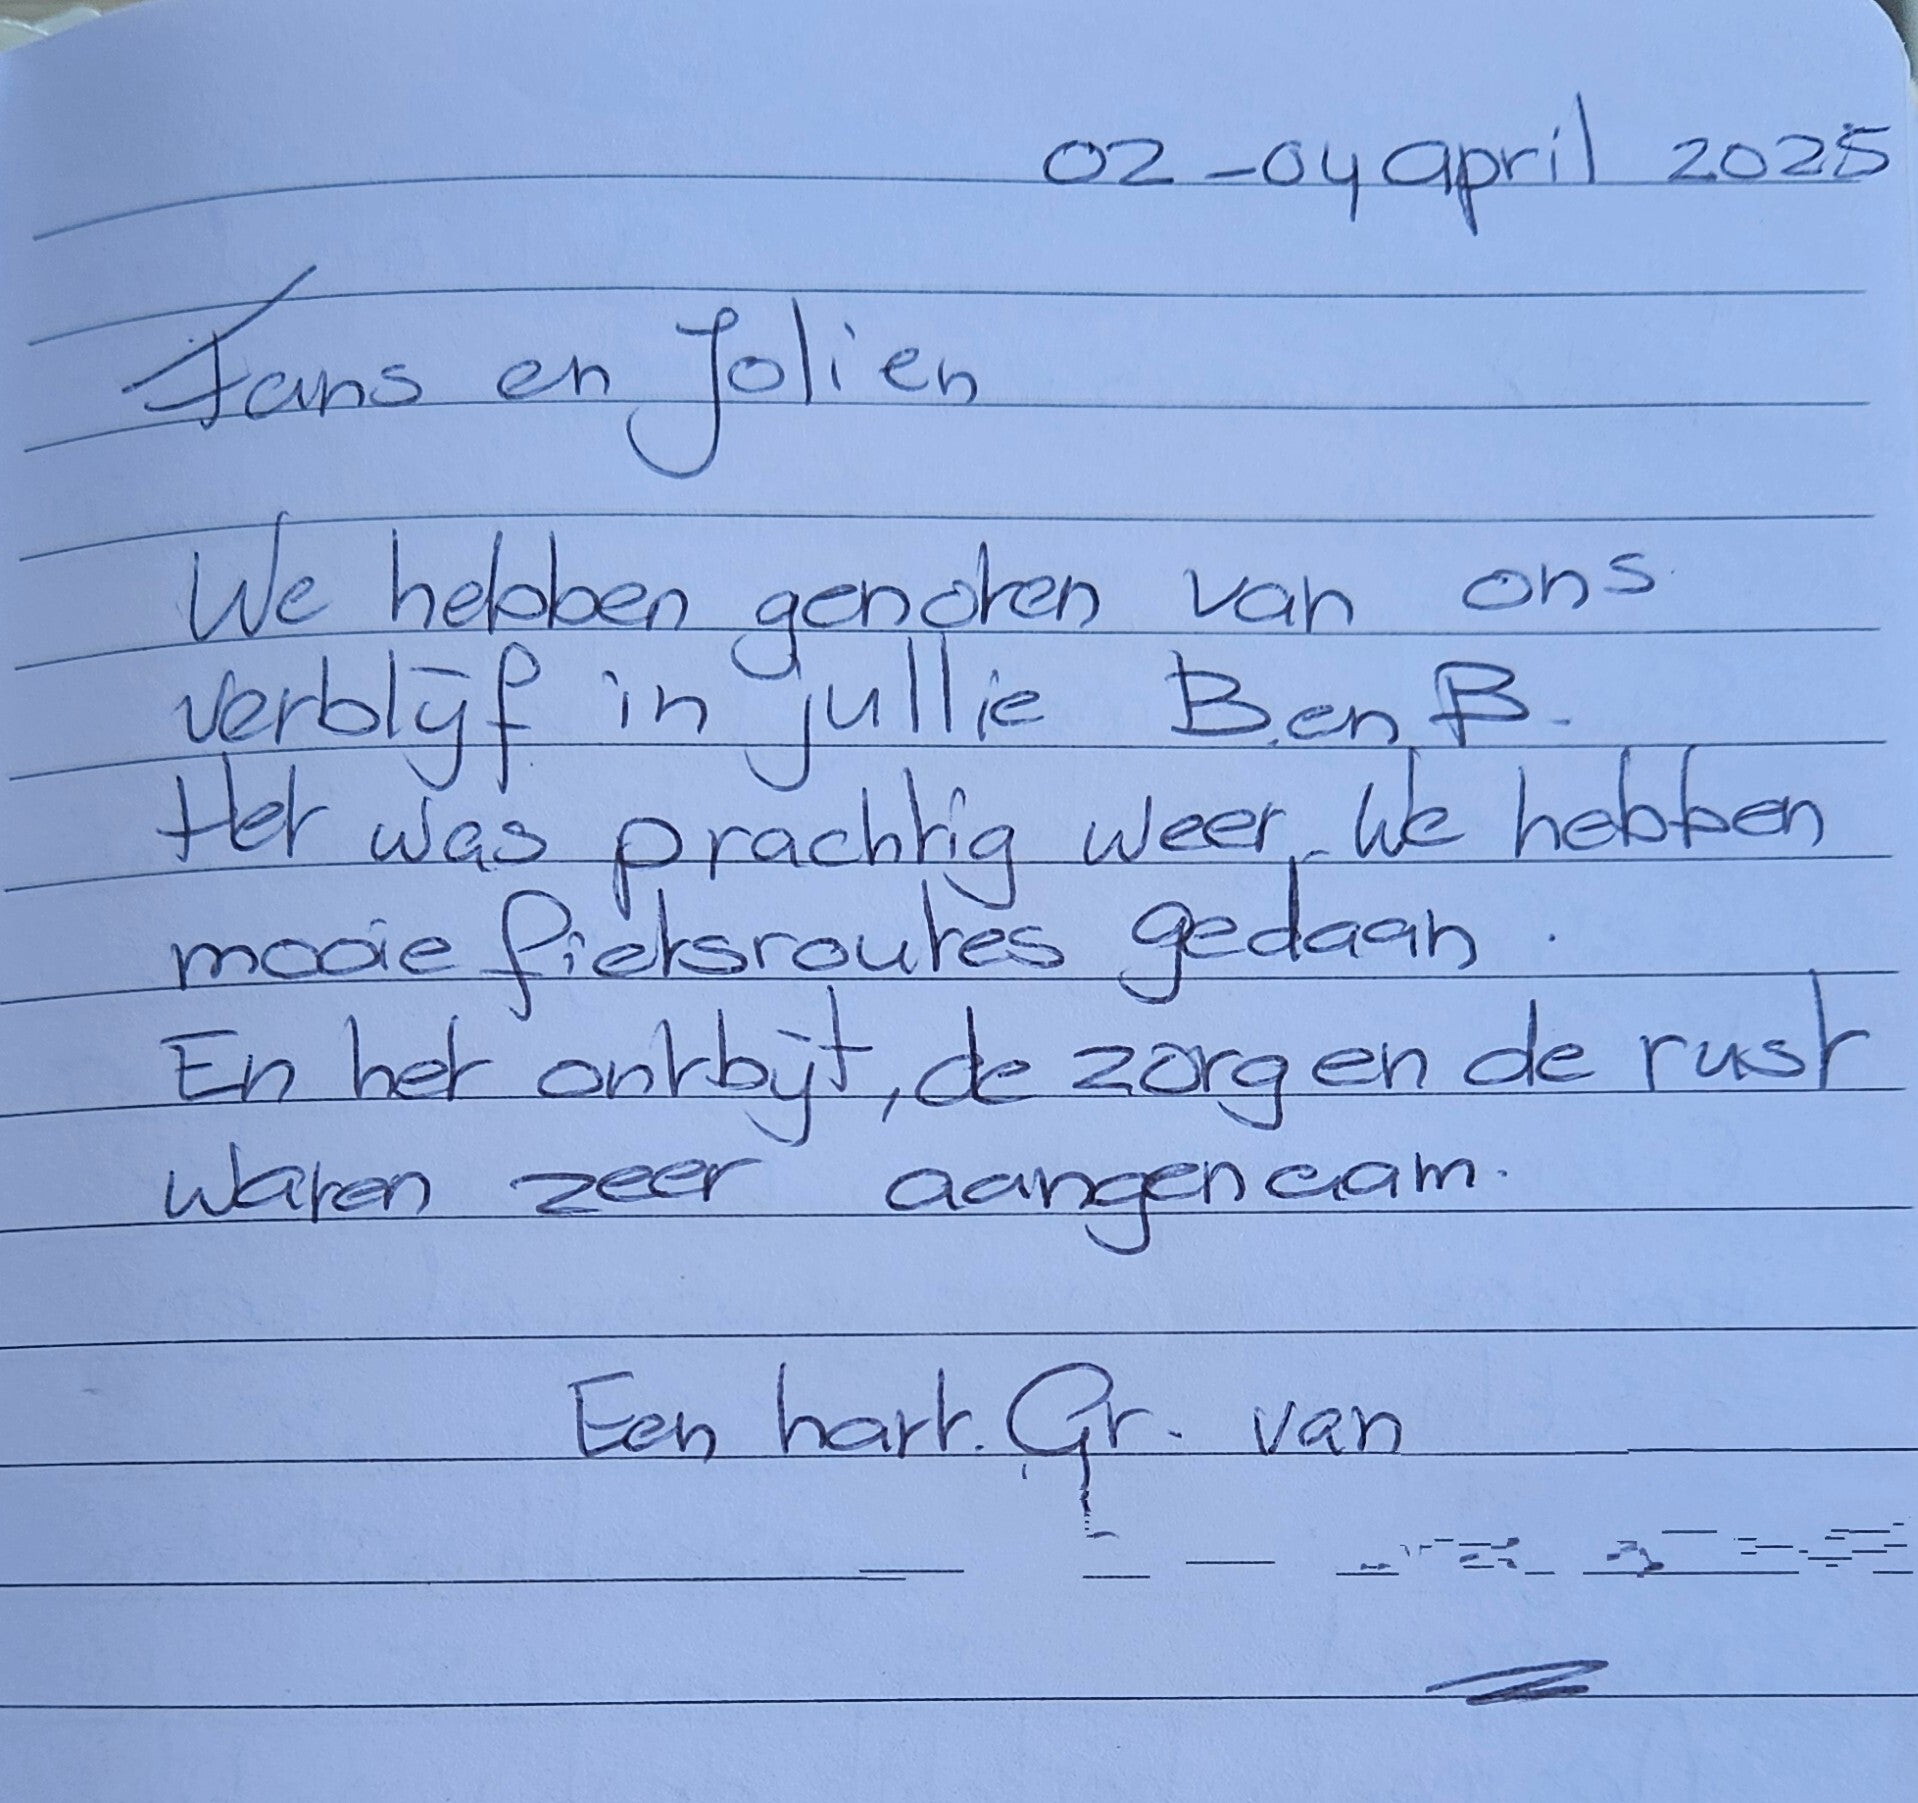 02-04 april 2025
Fans en Jolien
We hebben genoten van ons
verblijf in jullie B.en B.
Het was prachtig weer. We hebben
mooie fietsroutes gedaan.
En het ontbijt, de zorg en de rust
waren zeer aangenaam.
Een hart. Gr. van